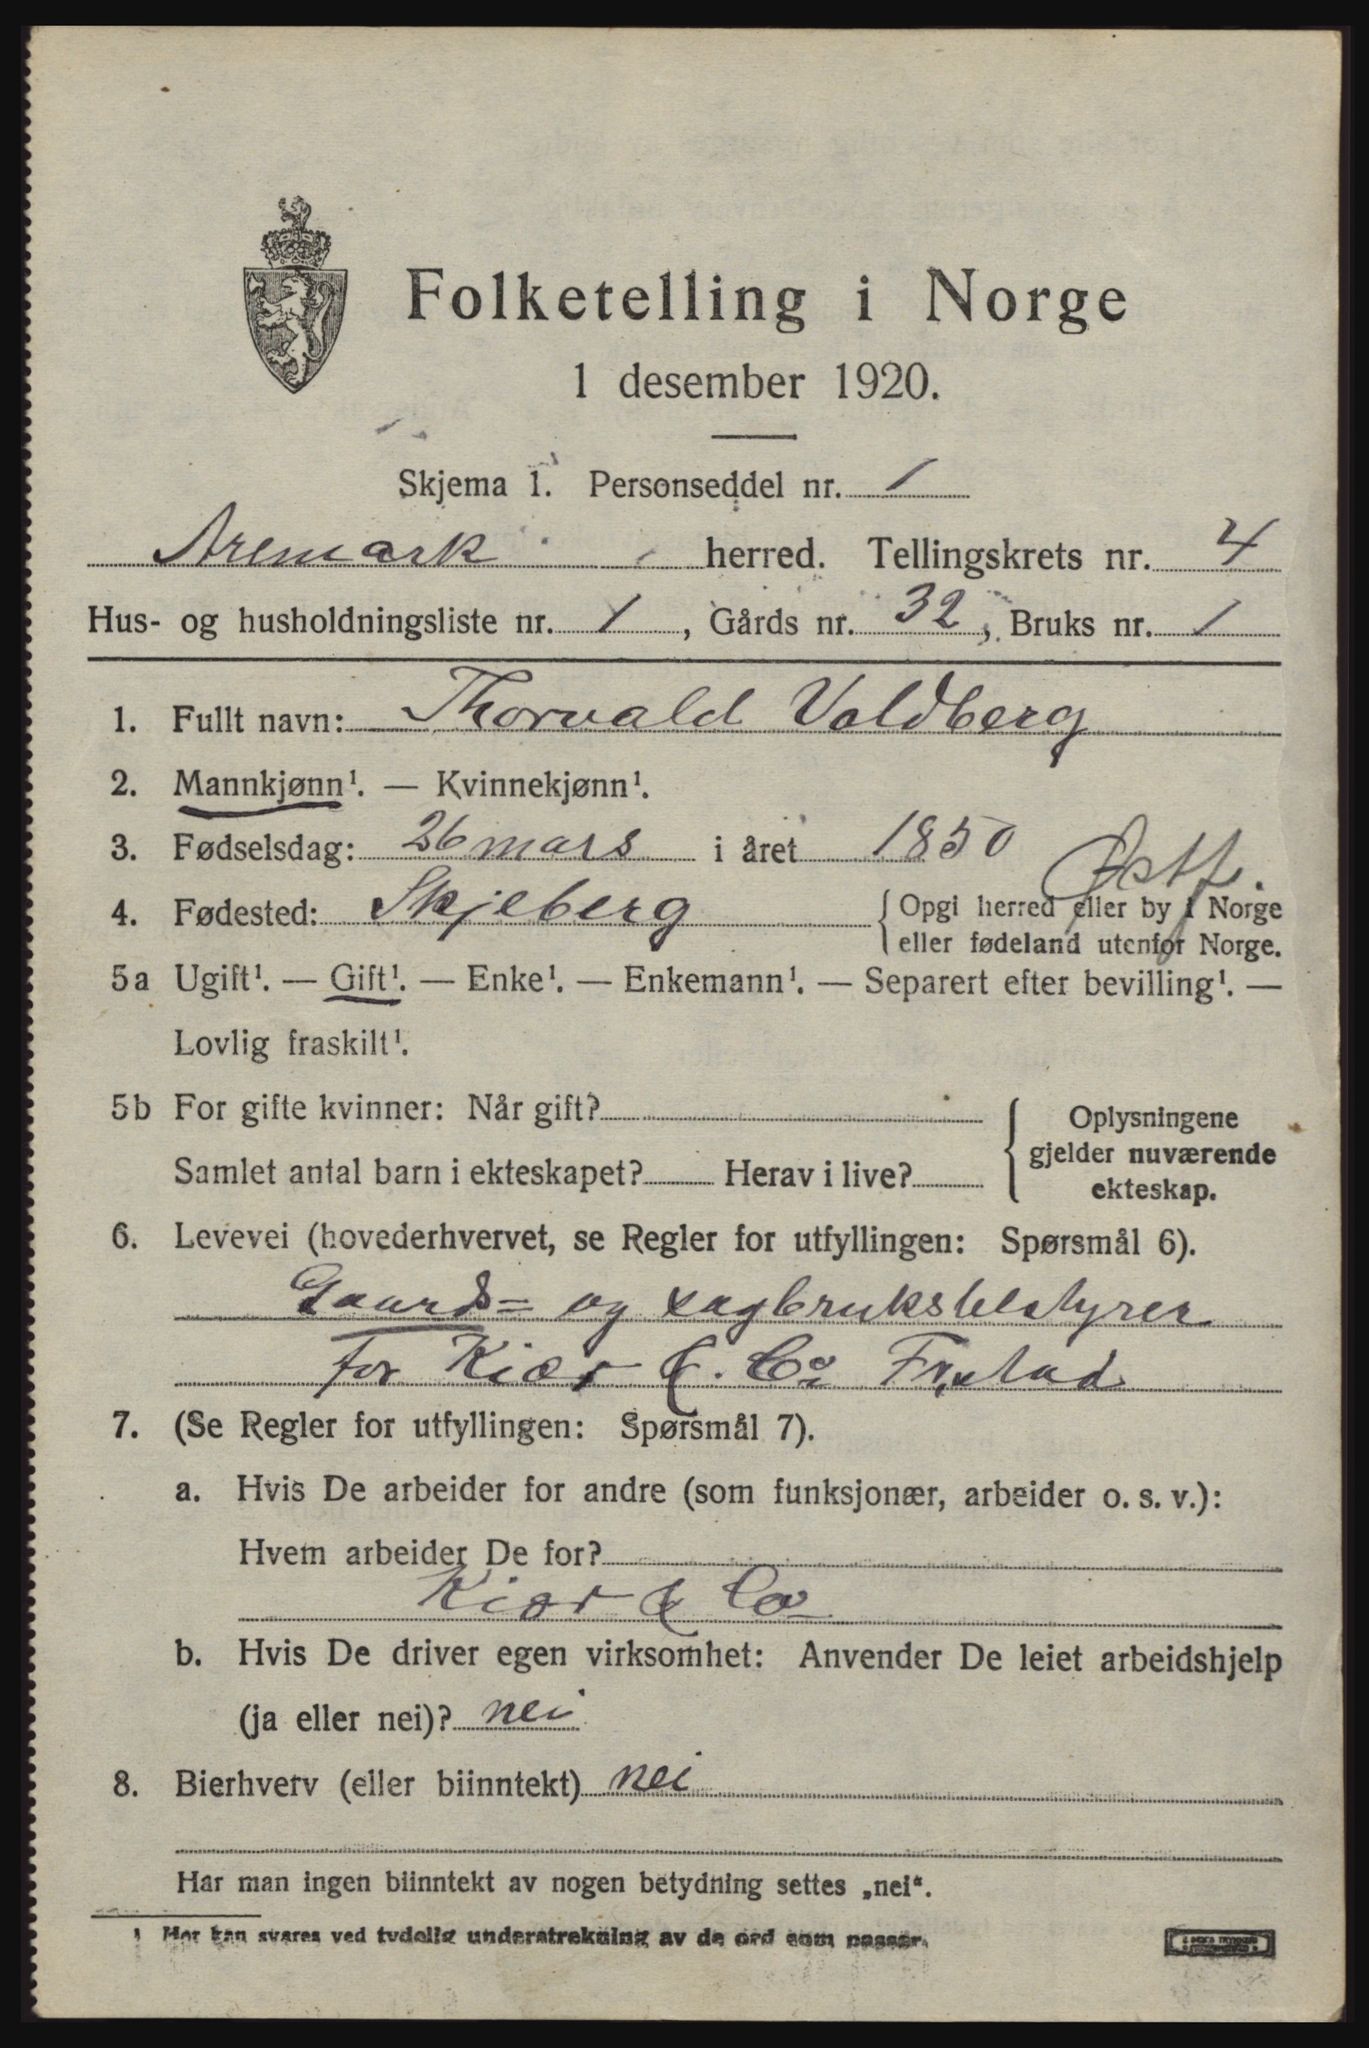 Folketelling i Norge
1 desember 1920.
Skjema 1. Personseddel nr. 1
Aremark herred. Tellingskrets nr. 4
Hus- og husholdningsliste nr. 1, Gårds nr. 32, Bruks nr. 1
1. Fullt navn: Thorvald Voldberg
2. Mannkjønn¹. — Kvinnekjønn¹.
3. Fødselsdag: 26 mars i året 1850
Østf.
4. Fødested: Skjeberg {Opgi herred eller by i Norge
eller fødeland utenfor Norge.
5a Ugift¹. — Gift¹. — Enke¹. — Enkemann¹. — Separert efter bevilling¹. —
Lovlig fraskilt¹.
5b For gifte kvinner: Når gift? { Oplysningene
gjelder nuværende
Samlet antal barn i ekteskapet? Herav i live?
ekteskap.
6. Levevei (hovederhvervet, se Regler for utfyllingen: Spørsmål 6).
Gaards= og sagbruksbestyrer
for Kiær & Co Fr.stad
7. (Se Regler for utfyllingen: Spørsmål 7).
a. Hvis De arbeider for andre (som funksjonær, arbeider o. s. v.):
Hvem arbeider De for?
Kiær & Co
b. Hvis De driver egen virksomhet: Anvender De leiet arbeidshjelp
(ja eller nei)? nei
8. Bierhverv (eller biinntekt) nei
Har man ingen biinntekt av nogen betydning settes „nei“.
1 Her kan svares ved tydelig understrekning av de ord som passer.